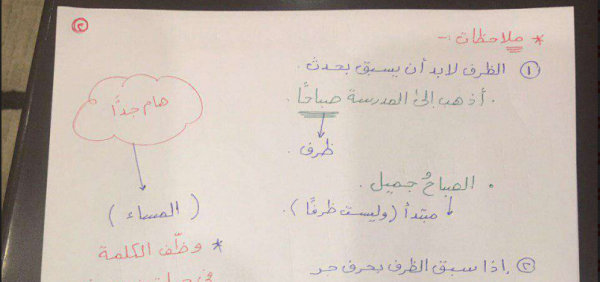 ٢
* ملاحظات :-
١ الظرف لابد أن يسبق بحدث.
. أذهب إلى المدرسة صباحًا
ظرف.
. الصباحُ جميل.
مبتدأ (وليست ظرفًا).
٢ إذا سبق الظرف بحرف جر
هام جدًّا
(المساء)
* وظّف الكلمة
في